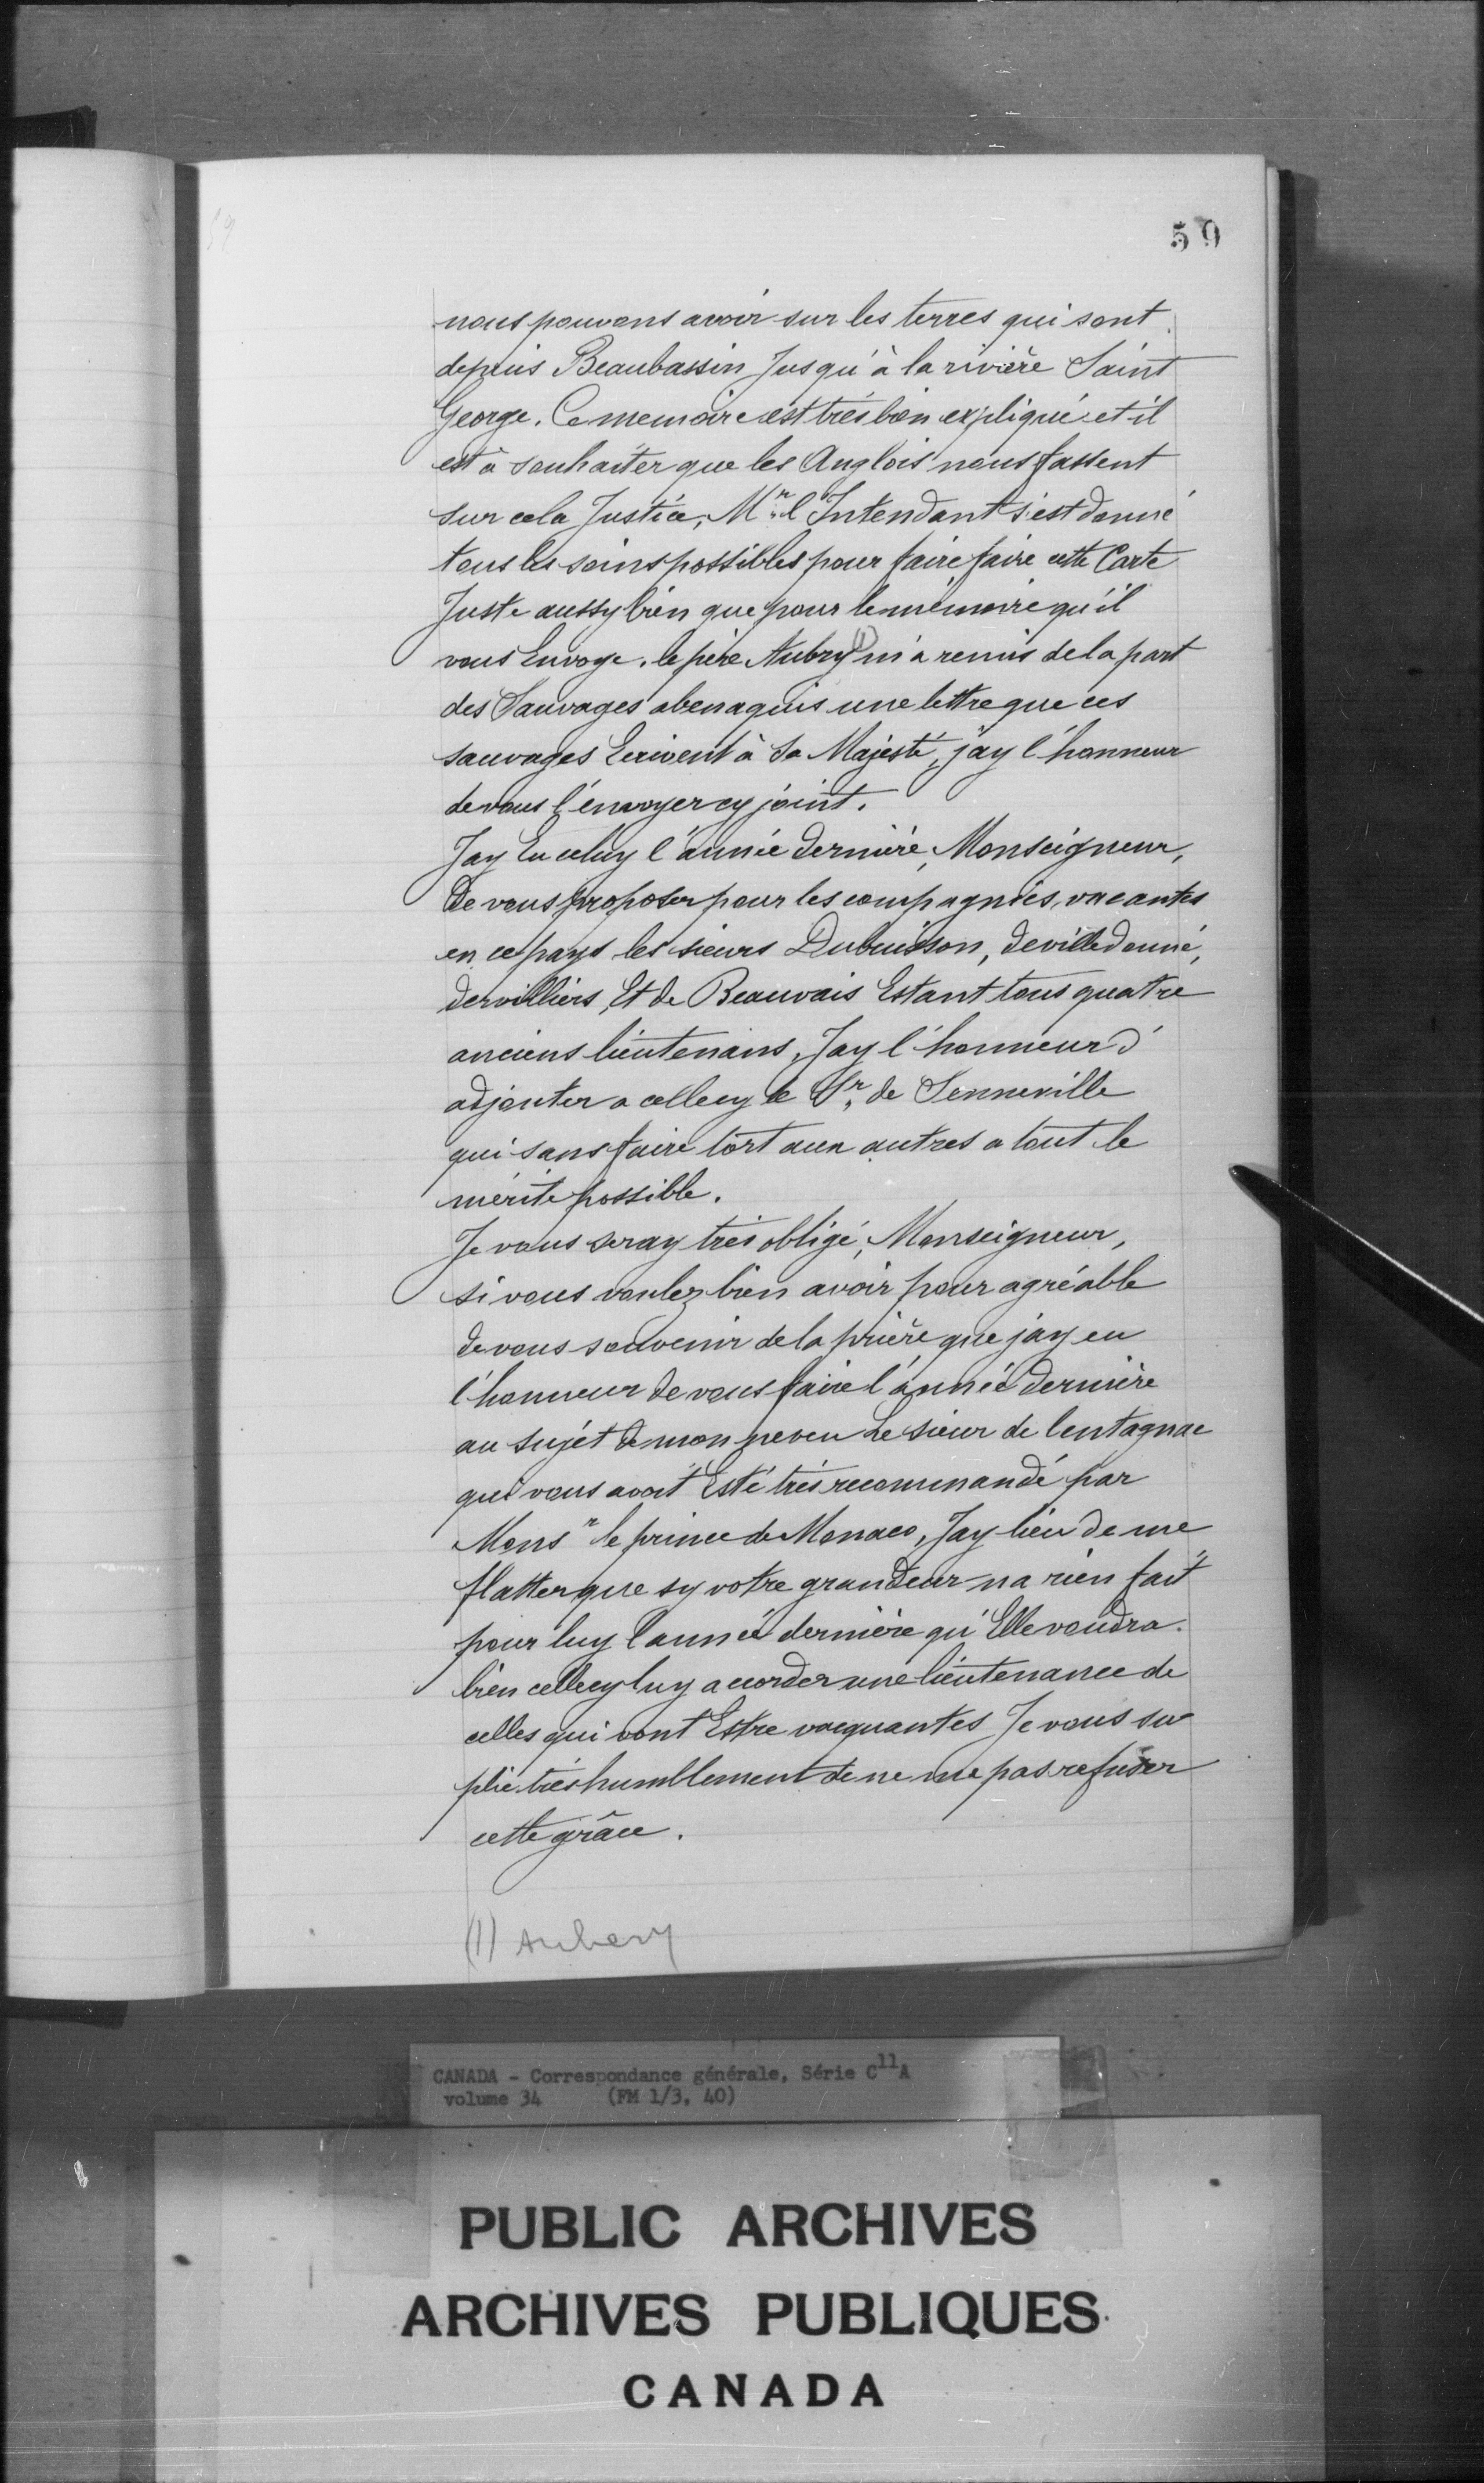 59
nous pouvons avoir sur les terres qui sont
depuis Beaubassin Jusqu'à la rivière Saint
George. Ce memoire est très bien expliqué et il
est à souhaiter que les Anglois nous fassent
sur cela Justice, Mr. l'Intendant s'est donné
tous les soins possibles pour faire faire cette Carte
Juste aussy bien que pour le mémoire qu'il
vous Envoye. le père Aubry (1) m'a remis de la part
des Sauvages abenaquis une lettre que ces
sauvages Ecrivent à Sa Majesté, j'ay l'honneur
de vous l'envoyer cy joint.
Jay Eu celuy l'année dernière, Monseigneur,
de vous proposer pour les compagnies vacantes
en ce pays les sieurs Dubuisson, de villedonné,
dervilliers, Et de Beauvais Estant tous quatre
anciens lieutenans, Jay l'honneur d'
adjouter a cellecy le Sr. de Senneville
qui sans faire tort aux autres a tout le
mérite possible.
Je vous seray très obligé, Monseigneur,
si vous voulez bien avoir pour agréable
de vous souvenir de la prière que jay eu
l'honneur de vous faire l'année dernière
au sujet de mon neveu Le sieur de lentagnac
qui vous avoit Esté très recommandé par
Monsr le prince de Monaco, Jay lieu de me
flatter que sy votre grandeur na rien fait
pour luy l'année dernière qu'Elle voudra
bien cellecy luy accorder une lieutenance de
celles qui vont Estre vacquantes Je vous su
plie très humblement de ne me pas refuser
cette grâce.
(1) Aubery
CANADA - Correspondance générale, Série C11A
volume 34 (FM 1/3, 40)
PUBLIC ARCHIVES
ARCHIVES PUBLIQUES
CANADA